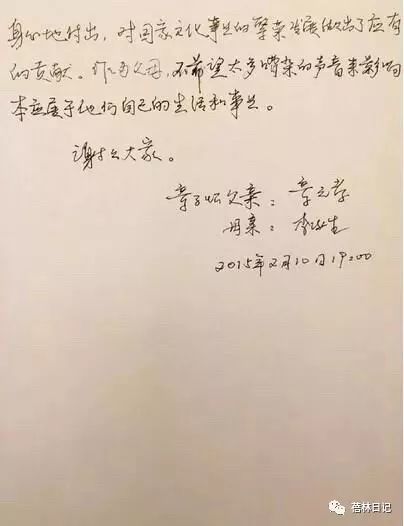 身心地付出，对国家文化事业的繁荣发展做出了应有
的贡献。作为父母，不希望太多嘈杂的声音来影响
本应属于他们自己的生活和事业。
谢谢大家。
章子怡父亲：章元孝
母亲：李涿生
2015年2月10日19:00
蓓林日记